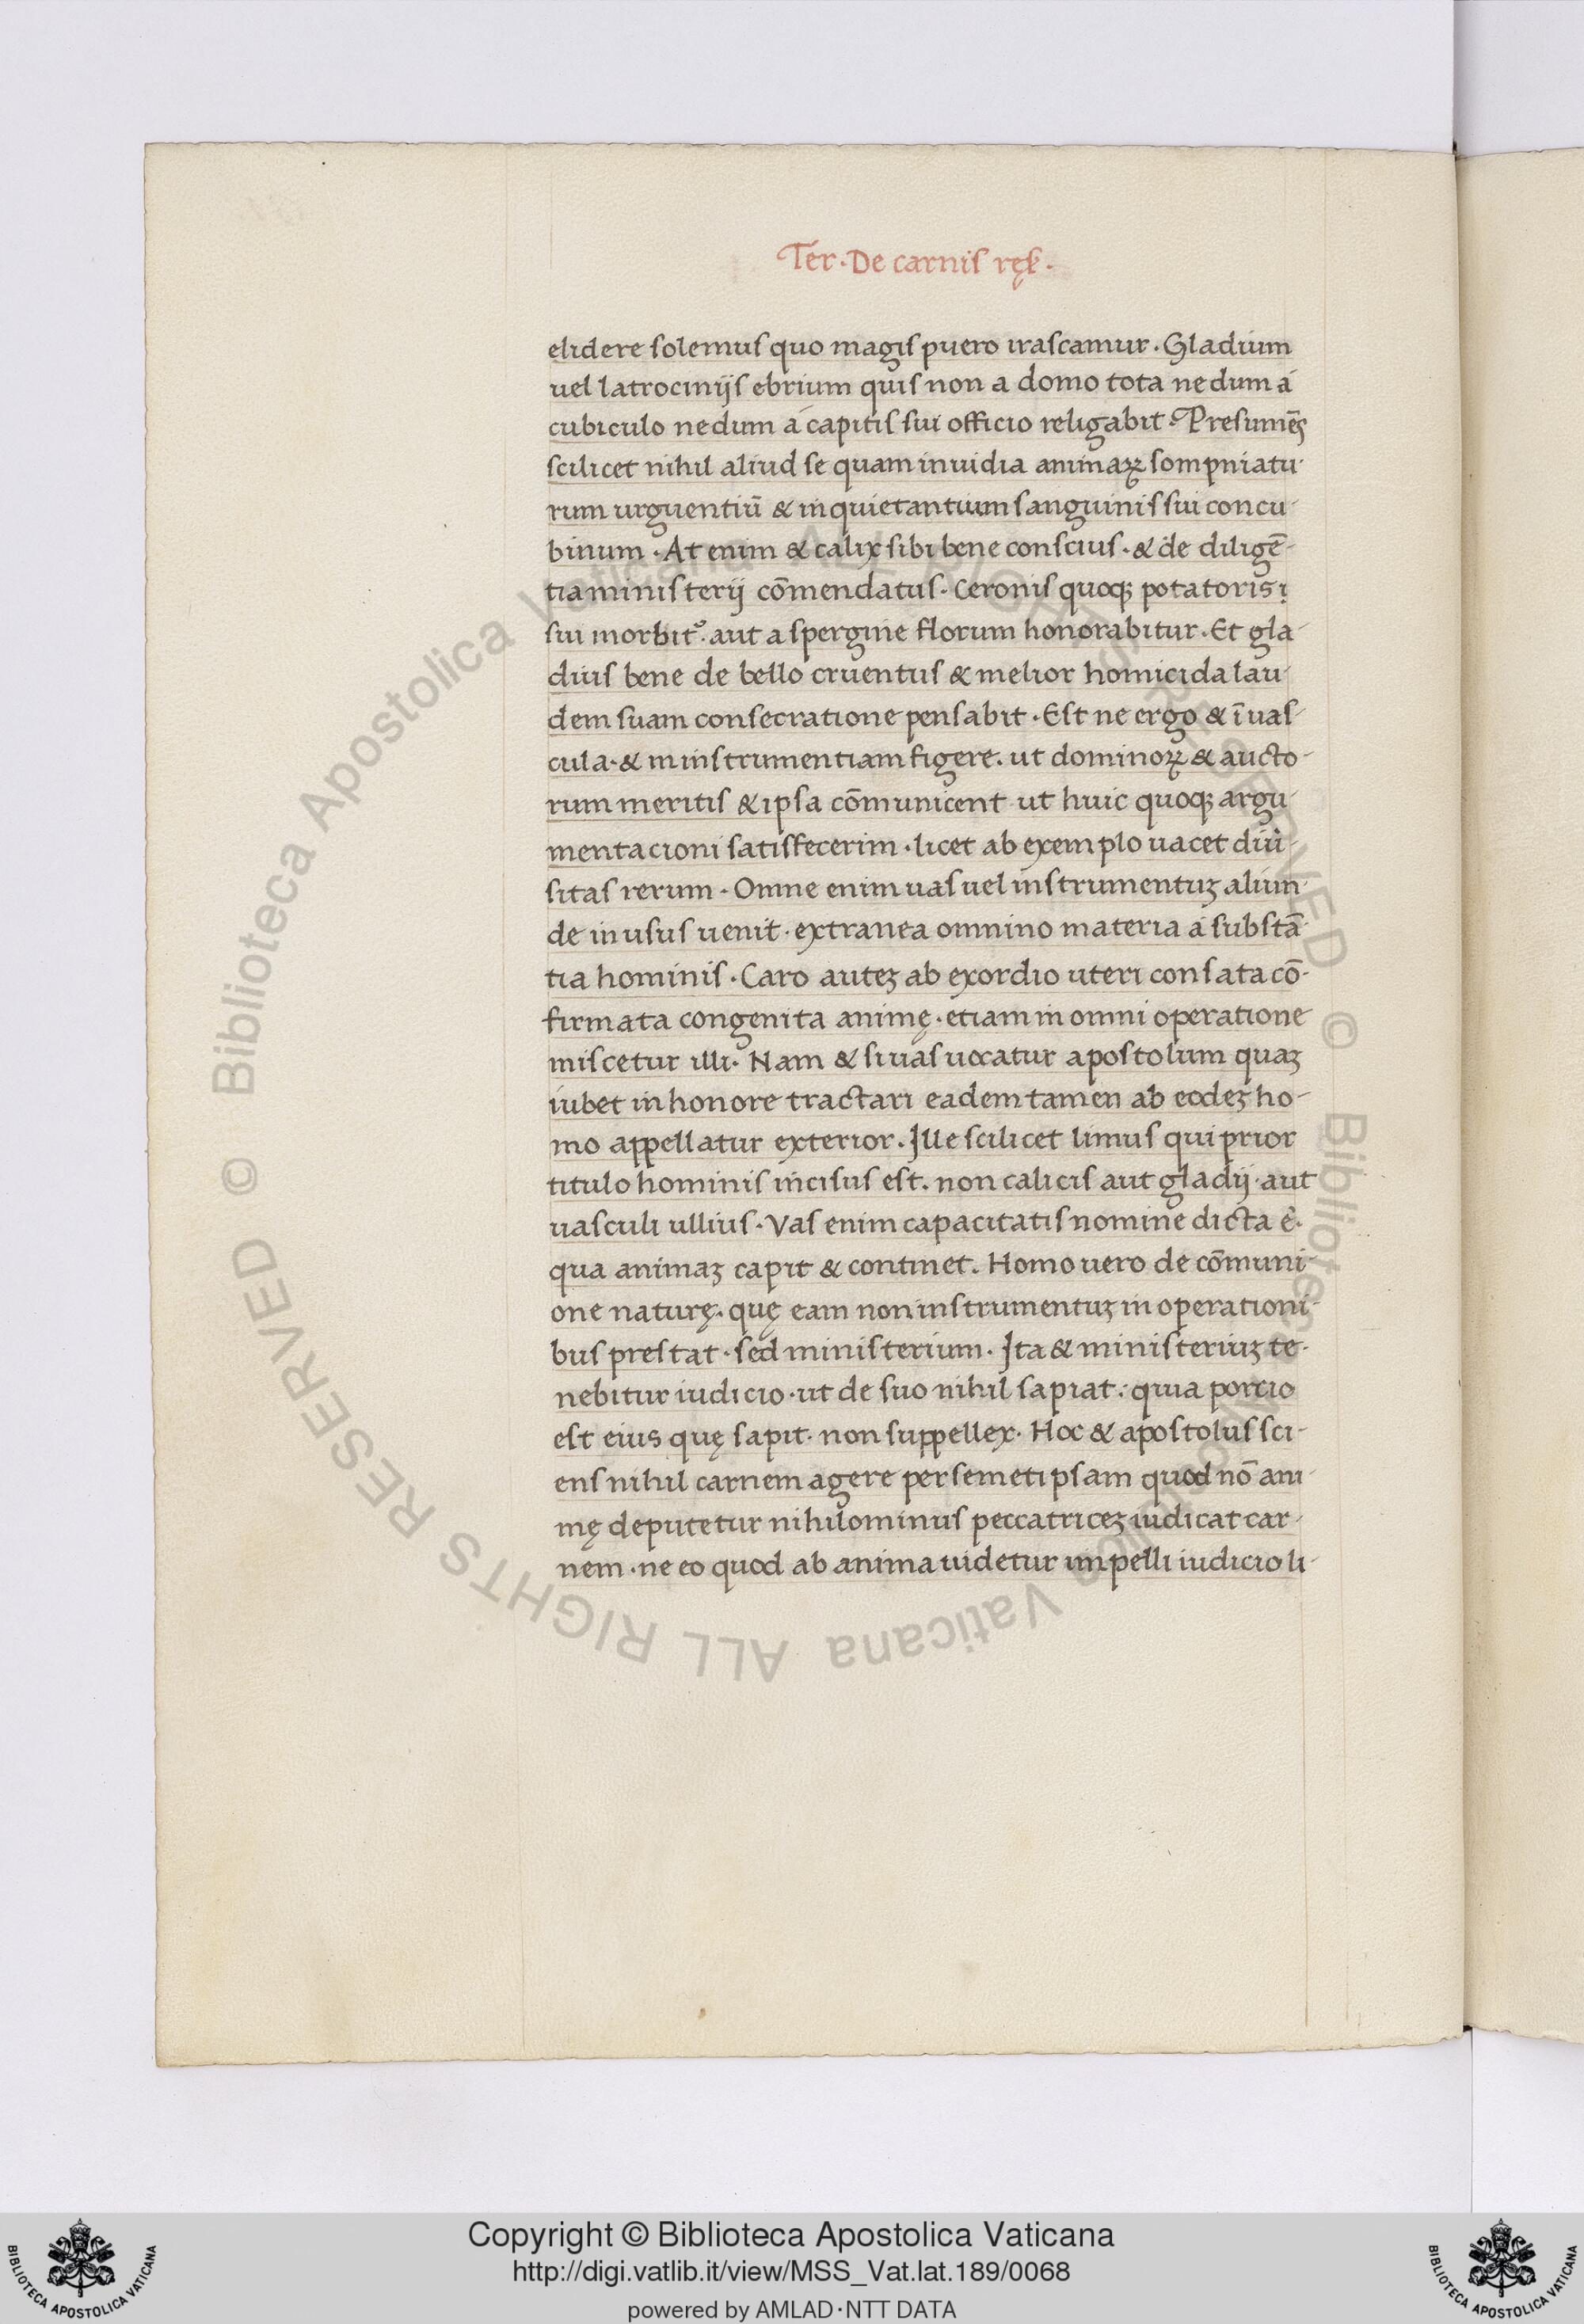 Ter · De carnis ręẜ ·
elidere solemus quo magis puero irascamur · Gladium
uel latrocinijs ebrium quis non a domo tota nedum á
cubiculo nedum á capitis sui officio religabit · Presumẽs
scilicet nihil aliud se quam inuidia animaꝝ sompniatu-
rum urguentiũ & inquietantium sanguinis sui concu-
binum · At enim & calix sibi bene conscius · & de diligẽ-
tia ministerij cõmendatus · Ceronis quoqꝫ potatoris
sui morbitᵒ · aut aspergine florum honorabitur · Et gla-
dius bene de bello cruentus & melior homicida lau-
dem suam consecratione pensabit · Est ne ergo & ĩ uas-
cula · & in instrumentiam figere · ut dominoꝝ & aucto-
rum meritis & ipsa cõmunicent ut huic quoqꝫ argu-
mentacioni satisfecerim · licet ab exemplo uacet diũ-
sitas rerum · Omne enim uas uel instrumentuꝫ aliun-
de in usus uenit · extranea omnino materia á substã-
tia hominis · Caro auteꝫ ab exordio uteri consata cõ-
firmata congenita animę · etiam in omni operatione
miscetur illi · Nam & si uas uocatur apostolum quaꝫ
iubet in honore tractari eadem tamen ab eodeꝫ ho-
mo appellatur exterior · Ille scilicet limus qui prior
titulo hominis incisus est · non calicis aut gladij · aut
uasculi ullius · Vas enim capacitatis nomine dicta ẽ ·
qua animaꝫ capit & continet · Homo uero de cõmuni-
one naturę · quę eam non instrumentuꝫ in operationi-
bus prestat · sed ministerium · Ita & ministeriuꝫ te-
nebitur iudicio · ut de suo nihil sapiat : quia porcio
est eius quę sapit · non suppellex · Hoc & apostolus sci-
ens nihil carnem agere per semetipsam quod nõ ani-
mę deputetur nihilominus peccatriceꝫ iudicat car-
nem · ne eo quod ab anima uidetur impelli iudicio li-
© Biblioteca Apostolica Vaticana ALL RIGHTS RESERVED
© Biblioteca Apostolica Vaticana ALL RIGHTS RESERVED
Copyright © Biblioteca Apostolica Vaticana
http://digi.vatlib.it/view/MSS_Vat.lat.189/0068
powered by AMLAD·NTT DATA
BIBLIOTECA APOSTOLICA VATICANA
BIBLIOTECA APOSTOLICA VATICANA